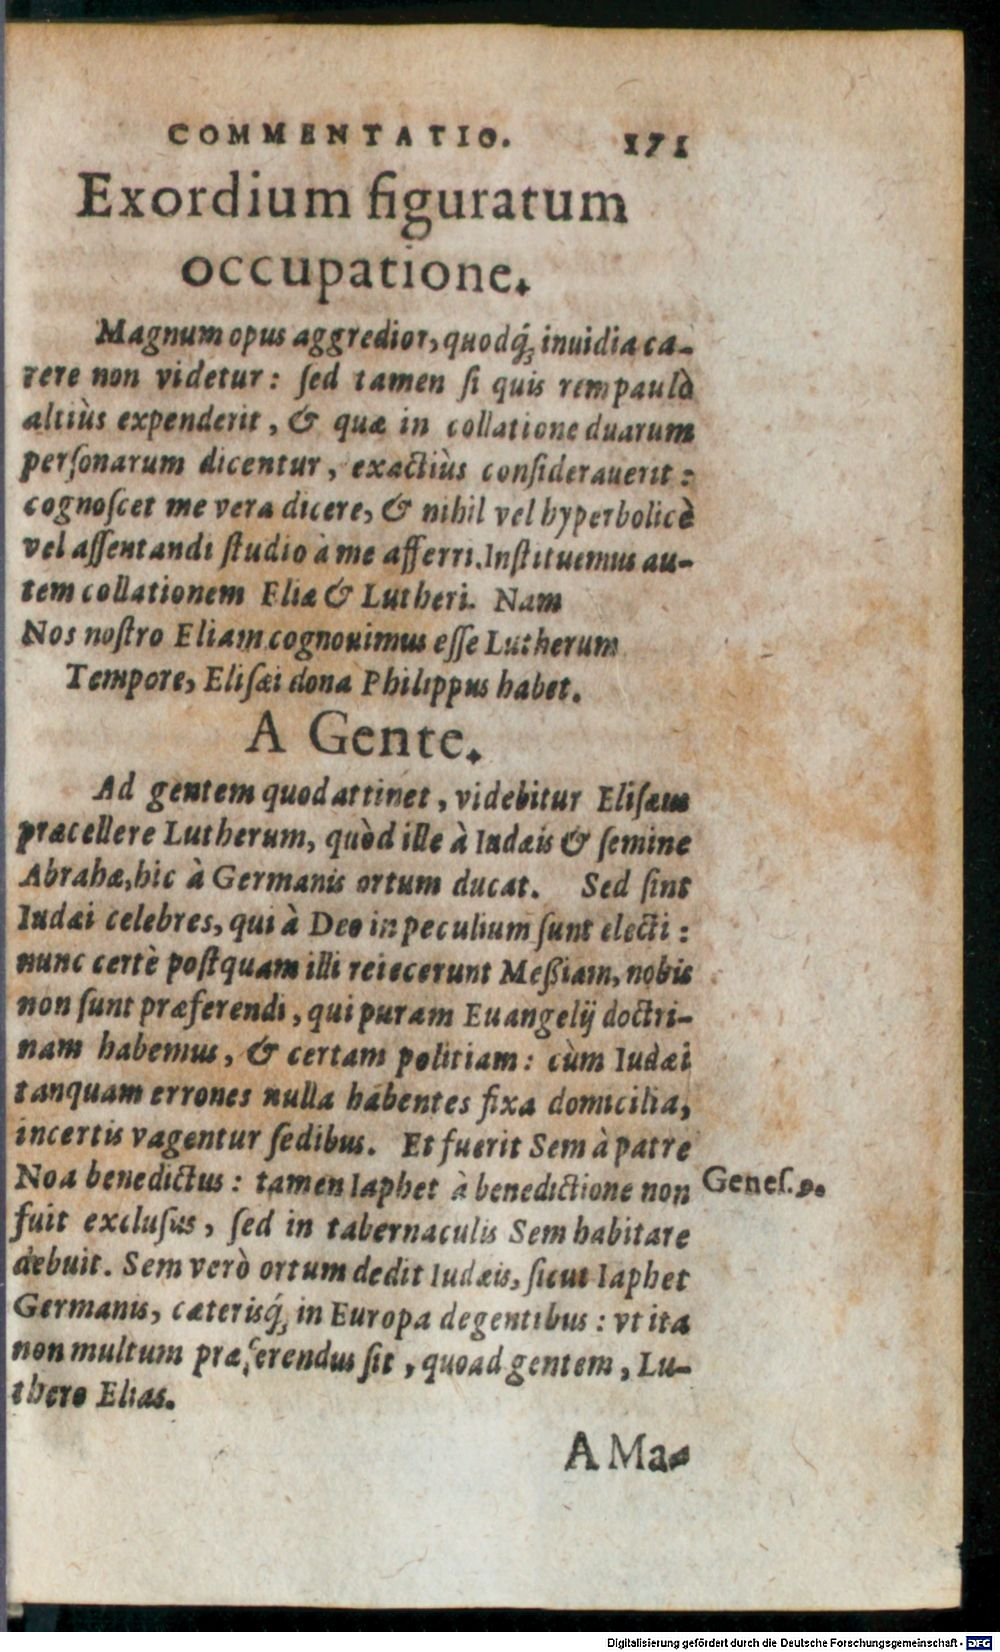 COMMENTATIO. 171
Exordium figuratum
occupatione.
Magnum opus aggredior, quodq́; inuidia ca-
rere non videtur: ſed tamen ſi quis rem paulò
altiùs expenderit, & quæ in collatione duarum
perſonarum dicentur, exactiùs conſiderauerit:
cognoſcet me vera dicere, & nihil vel hyperbolicè
vel aſſentandi ſtudio à me afferri. Inſtituemus au-
tem collationem Eliæ & Lutheri. Nam
Nos noſtro Eliam cognouimus eſſe Lutherum
Tempore, Eliſæi dona Philippus habet.
A Gente.
Ad gentem quod attinet, videbitur Eliſæus
præcellere Lutherum, quòd ille à Iudæis & ſemine
Abrahæ, hic à Germanis ortum ducat. Sed ſint
Iudæi celebres, qui à Deo in peculium ſunt electi:
nunc certè poſtquam illi reiecerunt Meßiam, nobis
non ſunt præferendi, qui puram Euangelij doctri-
nam habemus, & certam politiam: cùm Iudæi
tanquam errones nulla habentes fixa domicilia,
incertis vagentur ſedibus. Et fuerit Sem à patre
Noa benedictus: tamen Iaphet à benedictione non
Geneſ. 9.
fuit excluſus, ſed in tabernaculis Sem habitare
debuit. Sem verò ortum dedit Iudæis, ſicut Iaphet
Germanis, cæterisq́; in Europa degentibus: vt ita
non multum præferendus ſit, quoad gentem, Lu-
thero Elias.
A Ma-
Digitalisierung gefördert durch die Deutsche Forschungsgemeinschaft - DFG